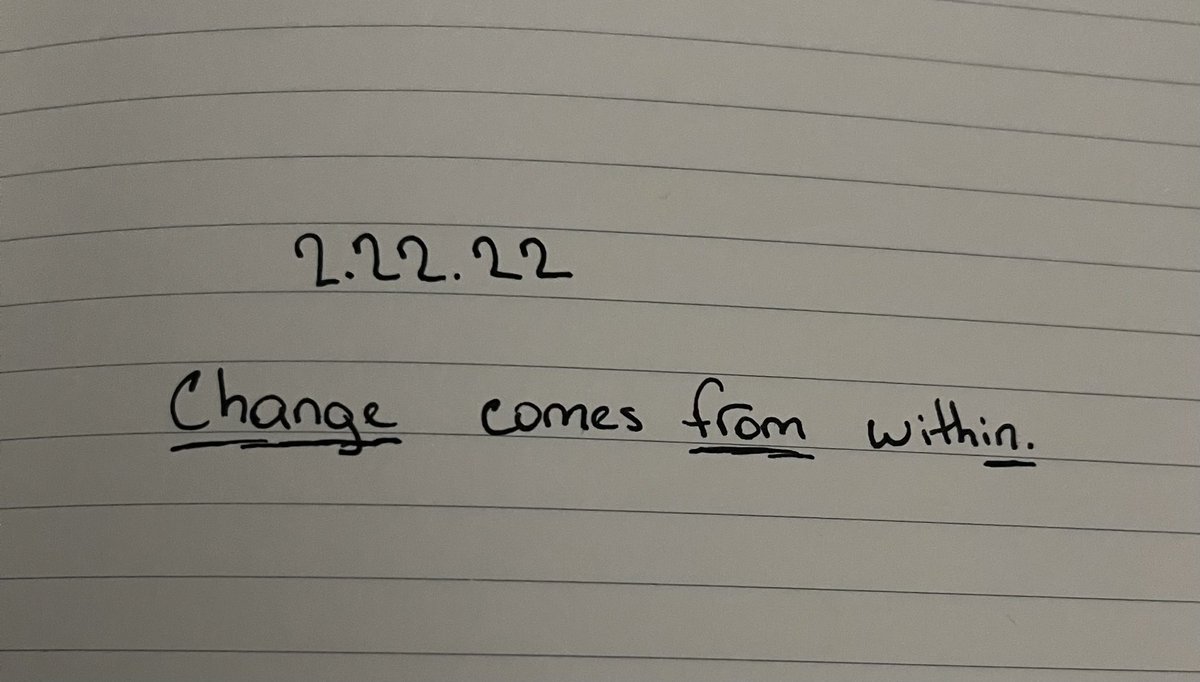 2.22.22
Change comes from within.